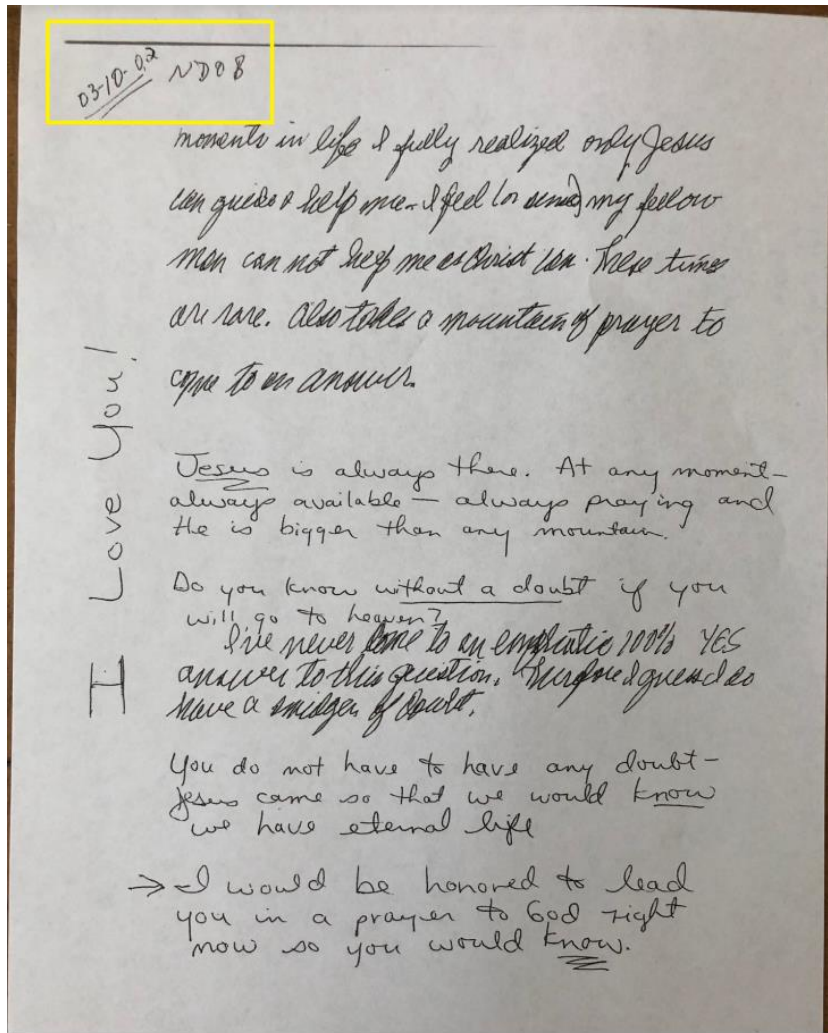 03-10-02 ND08
moments in life I fully realized only Jesus
can guide & help me - I feel (or sense) my fellow
man can not help me as Christ can. These times
are rare. Also takes a mountain of prayer to
come to an answer.
Jesus is always there. At any moment -
always available - always praying and
He is bigger than any mountain.
Do you know without a doubt if you
will go to heaven?
I've never come to an emphatic 100% YES
answer to this question. Therefore I guess I do
have a smidgen of doubt.
You do not have to have any doubt -
Jesus came so that we would know
we have eternal life
→ I would be honored to lead
you in a prayer to God right
now so you would know.
I Love You!